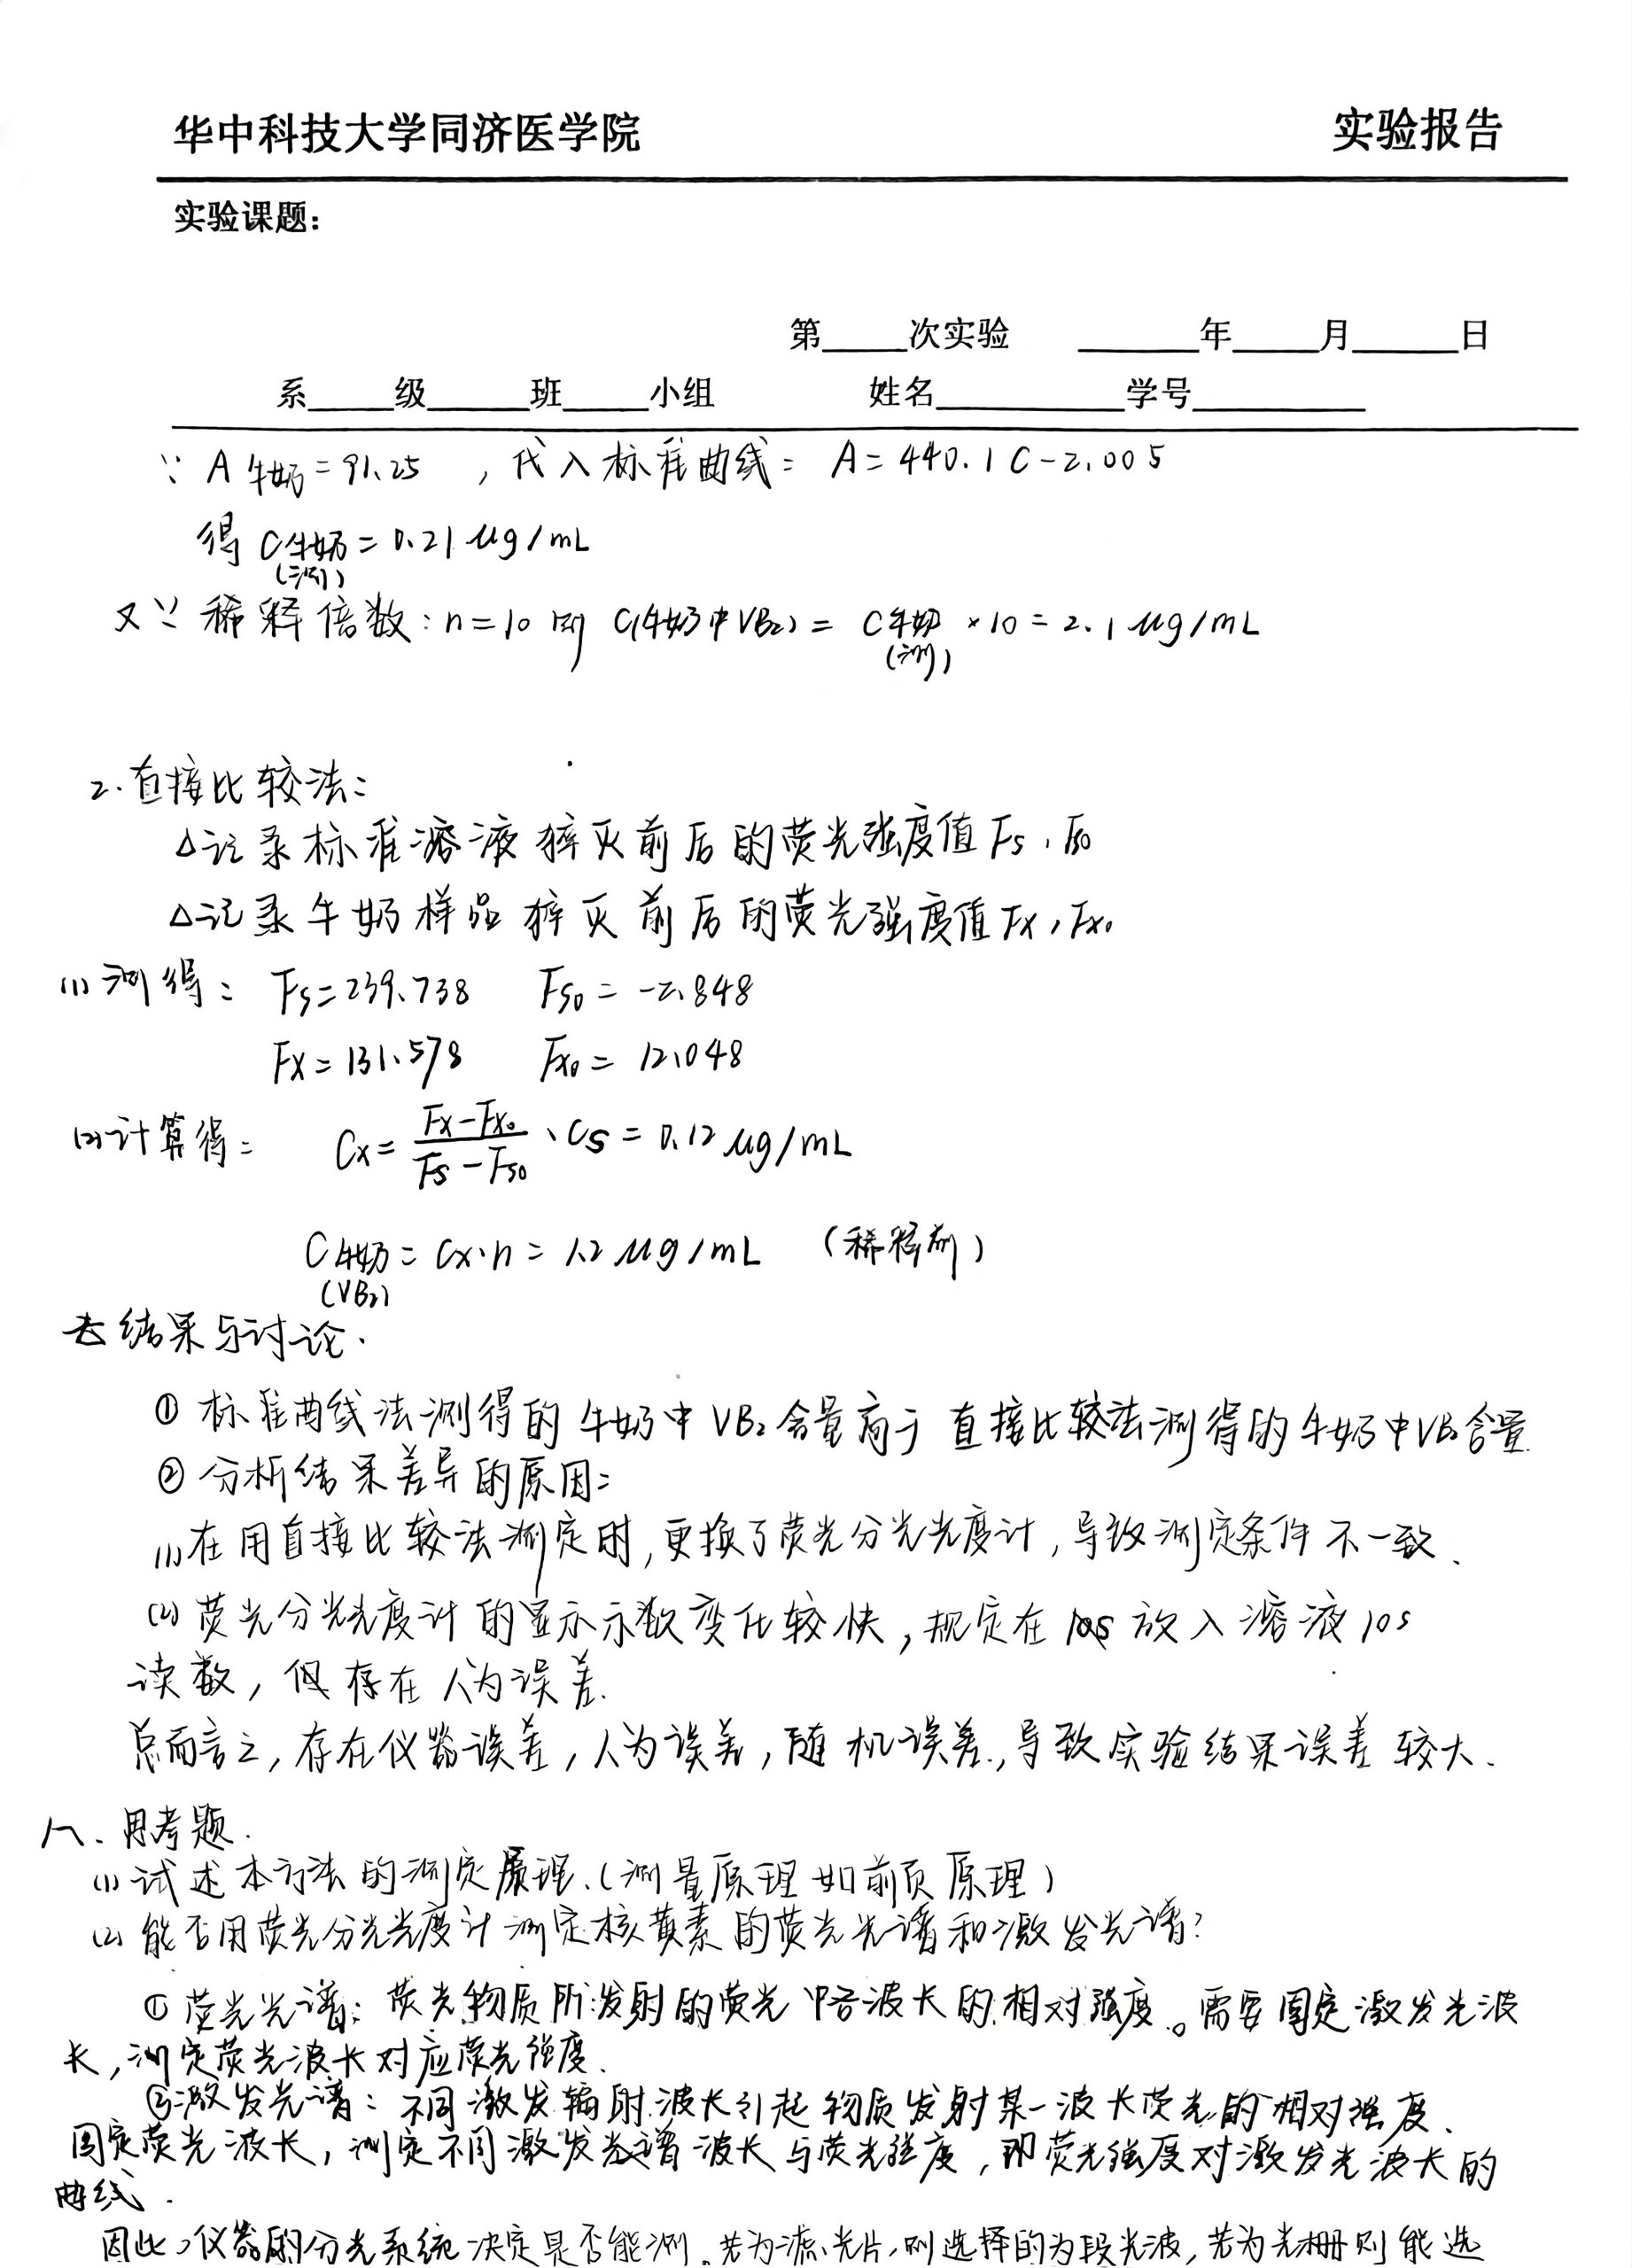 华中科技大学同济医学院 实验报告
实验课题:
第____次实验 ____年____月____日
系____级____班____小组 姓名____学号____
∵ A牛奶=91.25 ,代入标准曲线: A=440.1C-2.005
得 C牛奶=0.21μg/mL
(测)
又∵ 稀释倍数:n=10 则 C(牛奶中VB₂)= C牛奶×10=2.1μg/mL
(测)
2.直接比较法:
△记录标准溶液猝灭前后的荧光强度值Fs,Fs0
△记录牛奶样品猝灭前后的荧光强度值Fx,Fx0
(1)测得: Fs=239.738 Fs0=-2.848
Fx=131.578 Fx0=12.048
(2)计算得: Cx=(Fx-Fx0)/(Fs-Fs0)·Cs=0.12μg/mL
C牛奶=Cx·n=1.2μg/mL (稀释前)
(VB₂)
七 结果与讨论.
① 标准曲线法测得的牛奶中VB₂含量高于直接比较法测得的牛奶中VB₂含量.
② 分析结果差异的原因:
(1)在用直接比较法测定时,更换了荧光分光光度计,导致测定条件不一致.
(2)荧光分光光度计的显示示数变化较快,规定在放入溶液10s
读数,但存在人为误差.
总而言之,存在仪器误差,人为误差,随机误差,导致实验结果误差较大.
八、思考题.
(1)试述本方法的测定原理.(测量原理如前页原理)
(2)能否用荧光分光光度计测定核黄素的荧光光谱和激发光谱?
①荧光光谱:荧光物质所发射的荧光中各波长的相对强度。需要固定激发光波
长,测定荧光波长对应荧光强度.
②激发光谱:不同激发辐射波长引起物质发射某一波长荧光的相对强度.
固定荧光波长,测定不同激发光谱波长与荧光强度,即荧光强度对激发光波长的
曲线.
因此,仪器的分光系统决定是否能测.若为滤光片,则选择的为段光波,若为光栅则能选